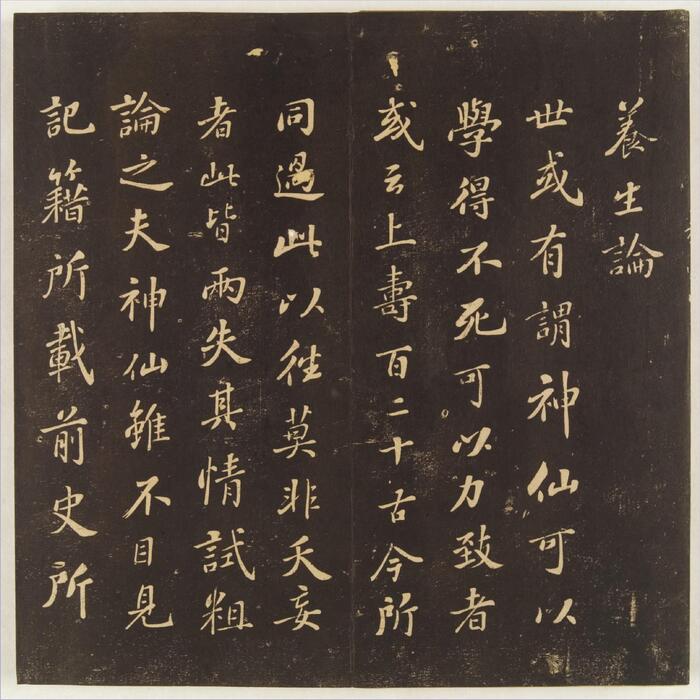 養生論
世或有謂神仙可以
學得不死可以力致者
或云上壽百二十古今所
同過此以往莫非夭妄
者此皆兩失其情試粗
論之夫神仙雖不目見
記籍所載前史所